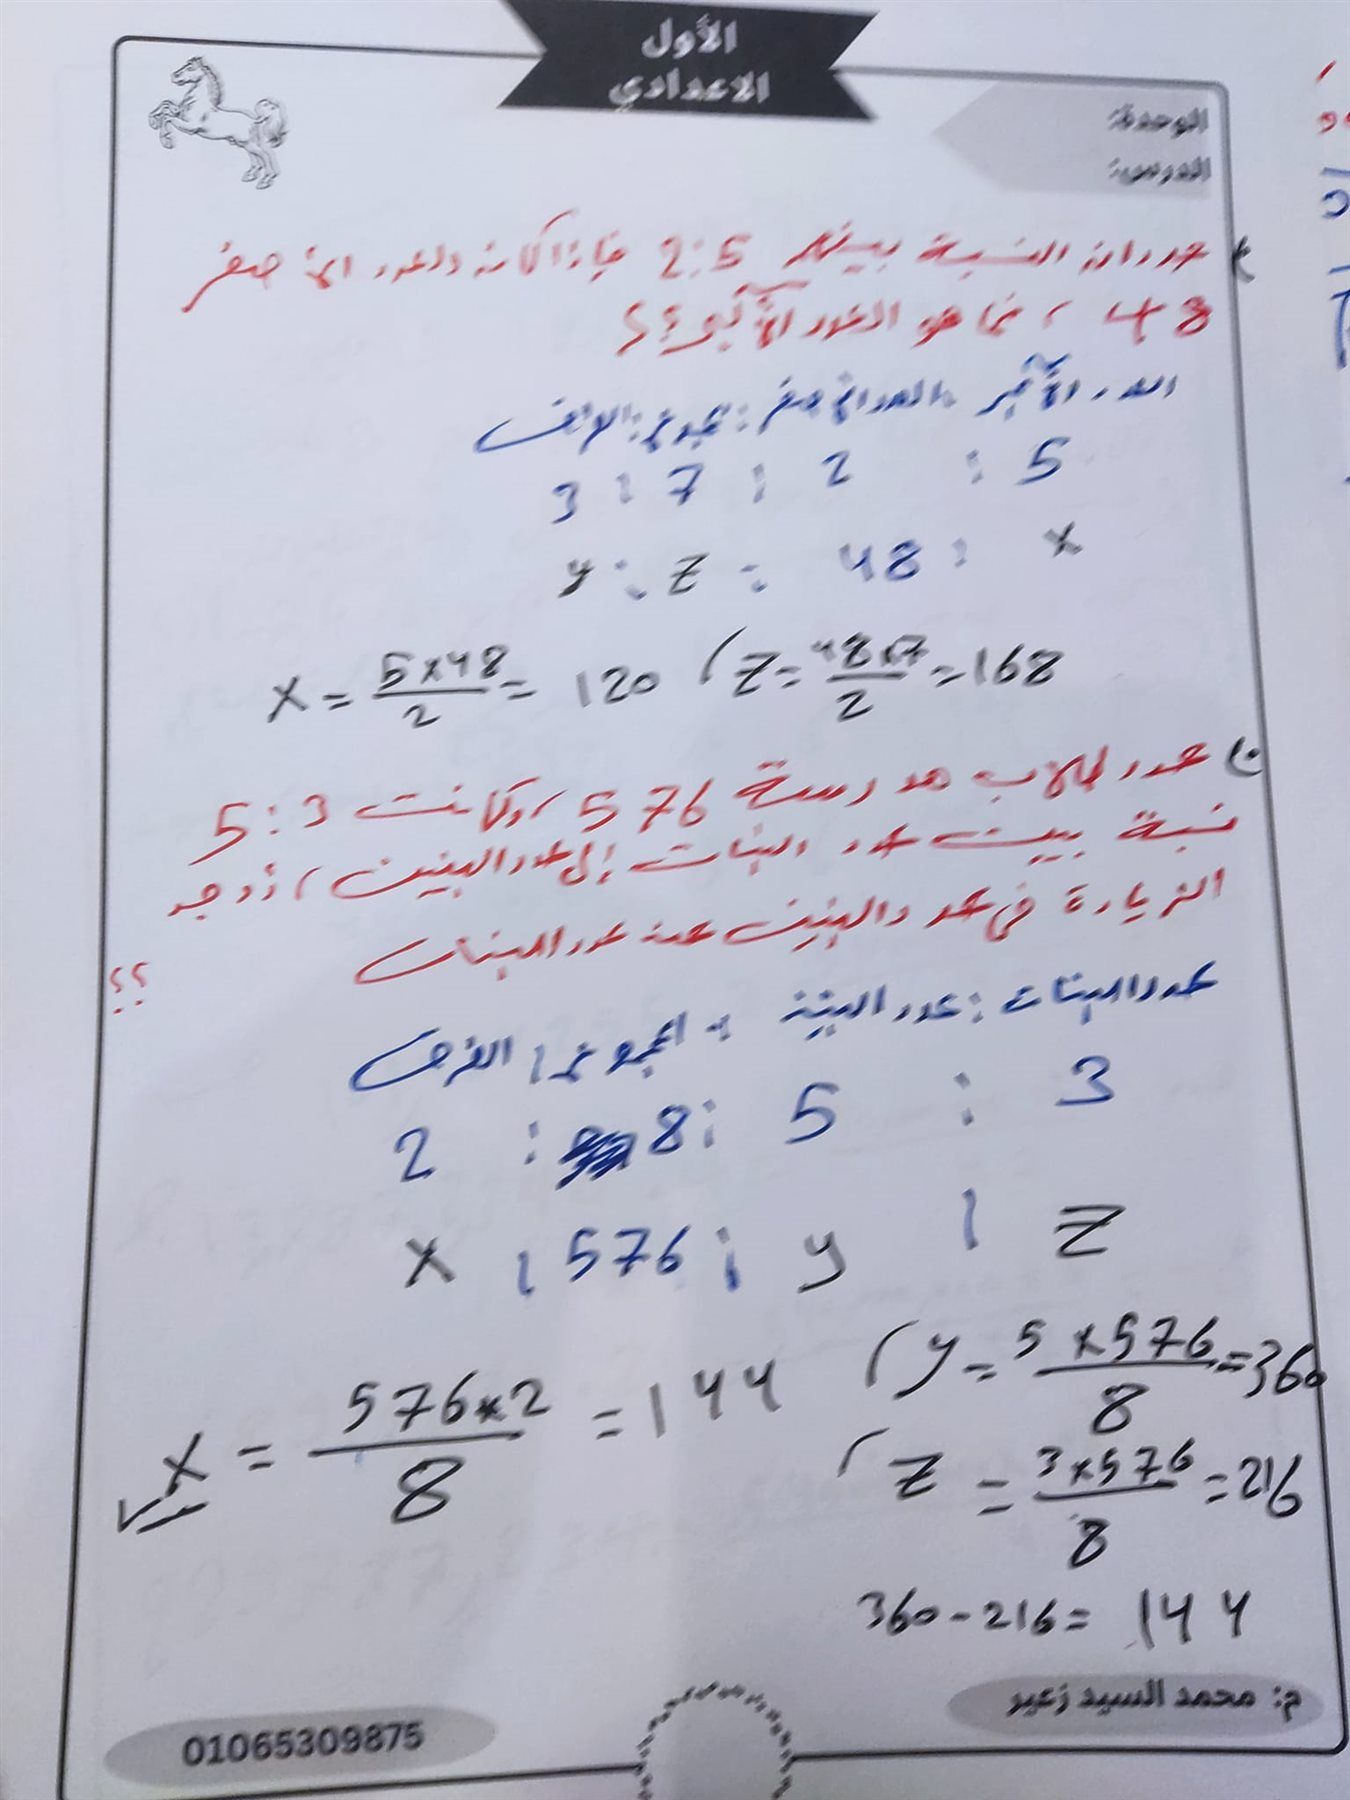 الأول
الاعدادي
الوحدة:
الدرس:
عددان النسبة بينهم 2:5 فإذا كان العدد الأصغر
48 ، فما هو العدد الأكبر؟؟
العدد الأكبر : العدد الأصغر : مجموع : الفرق
5 : 2 : 7 : 3
x : 48 : z : y
x = 5×48/2 = 120 ( z = 48×7/2 = 168
عدد طلاب مدرسة 576 ، وكانت 5:3
نسبة بين عدد البنات إلى عدد البنين ، أوجد
الزيادة في عدد البنين عن عدد البنات
؟؟
عدد البنات : عدد البنين : المجموع : الفرق
3 : 5 : 8 : 2
z : y : 576 : x
( y = 5×576/8 = 360
x = 576×2/8 = 144
( z = 3×576/8 = 216
360-216= 144
م: محمد السيد زعير
01065309875